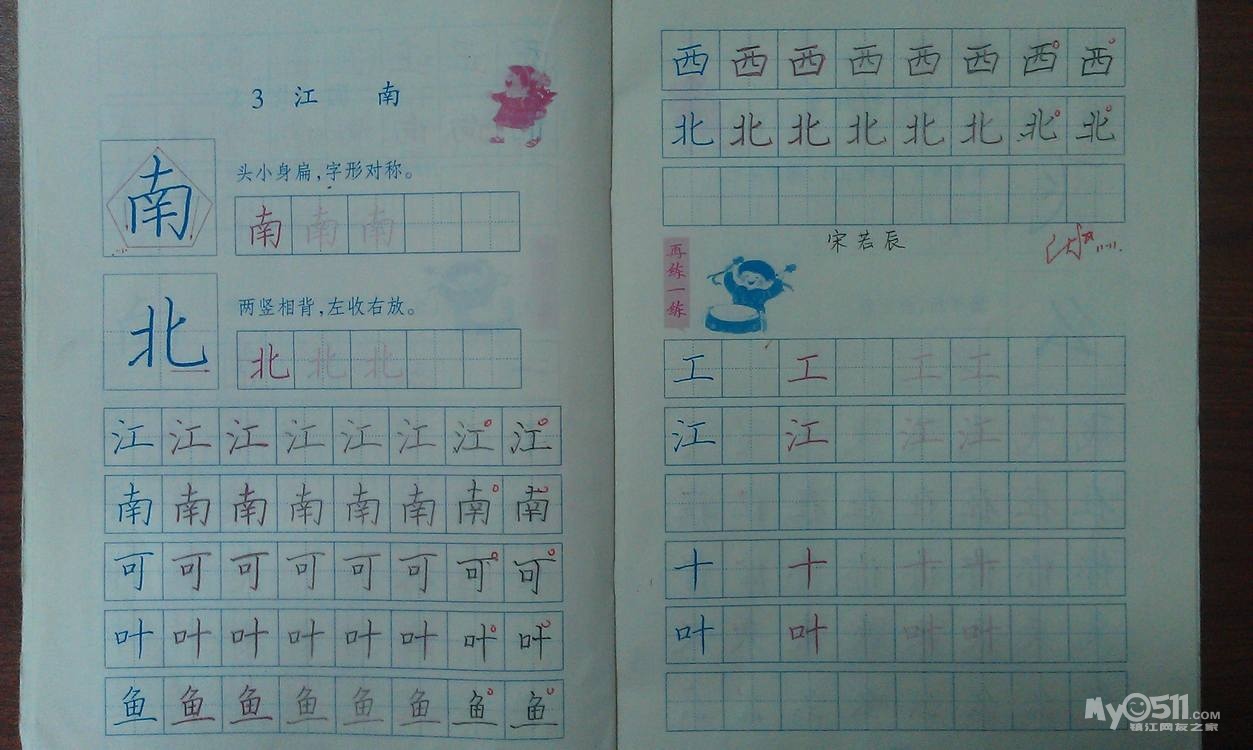 3 江 南
南
头小身扁,字形对称。
南 南 南
北
两竖相背,左收右放。
北 北 北
江 江 江 江 江 江 江 江
南 南 南 南 南 南 南 南
可 可 可 可 可 可 可 可
叶 叶 叶 叶 叶 叶 叶 叶
鱼 鱼 鱼 鱼 鱼 鱼 鱼 鱼
西 西 西 西 西 西 西 西
北 北 北 北 北 北 北 北
宋若辰
再练一练
工 工 工 工
江 江 江 江
十 十 十 十
叶 叶 叶 叶
My0511.COM
镇江网友之家